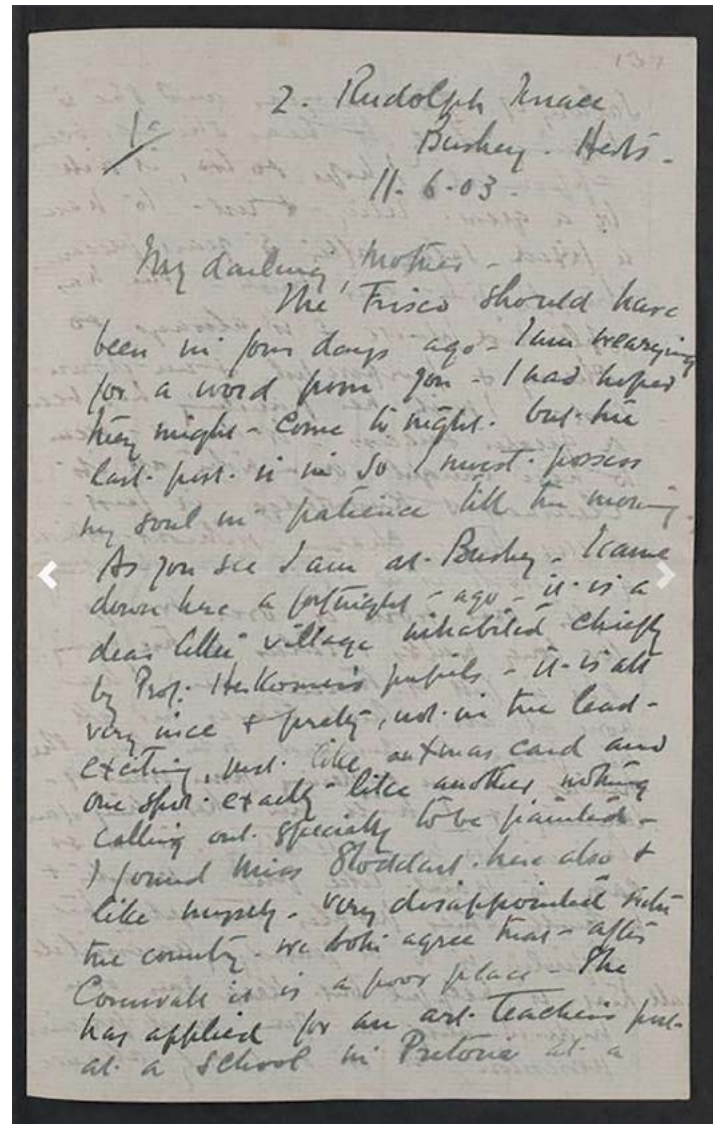 2. Rudolph Terrace
Bushey - Herts -
1a
11-6-03.
My darling Mother -
The Frisco should have
been in four days ago - I am wearying
for a word from you - I had hoped
they might - come to night. but the
last. post. is in so I must. possess
my soul in patience till the morning
As you see I am at. Bushey - I came
down here a fortnight - ago - it. is a
dear little village inhabited chiefly
by Prof. Herkomer's pupils - it. is all
very nice & pretty, not. in the least -
exciting, just. like an Xmas card and
one spot. exactly like another nothing
calling out. specially to be painted -
I found Miss Stoddart. here also &
like myself - very disappointed with
the country - we both agree that - after
Cornwall it is a poor place - She
has applied for an art. teachers post.
at. a school in Pretoria at. a